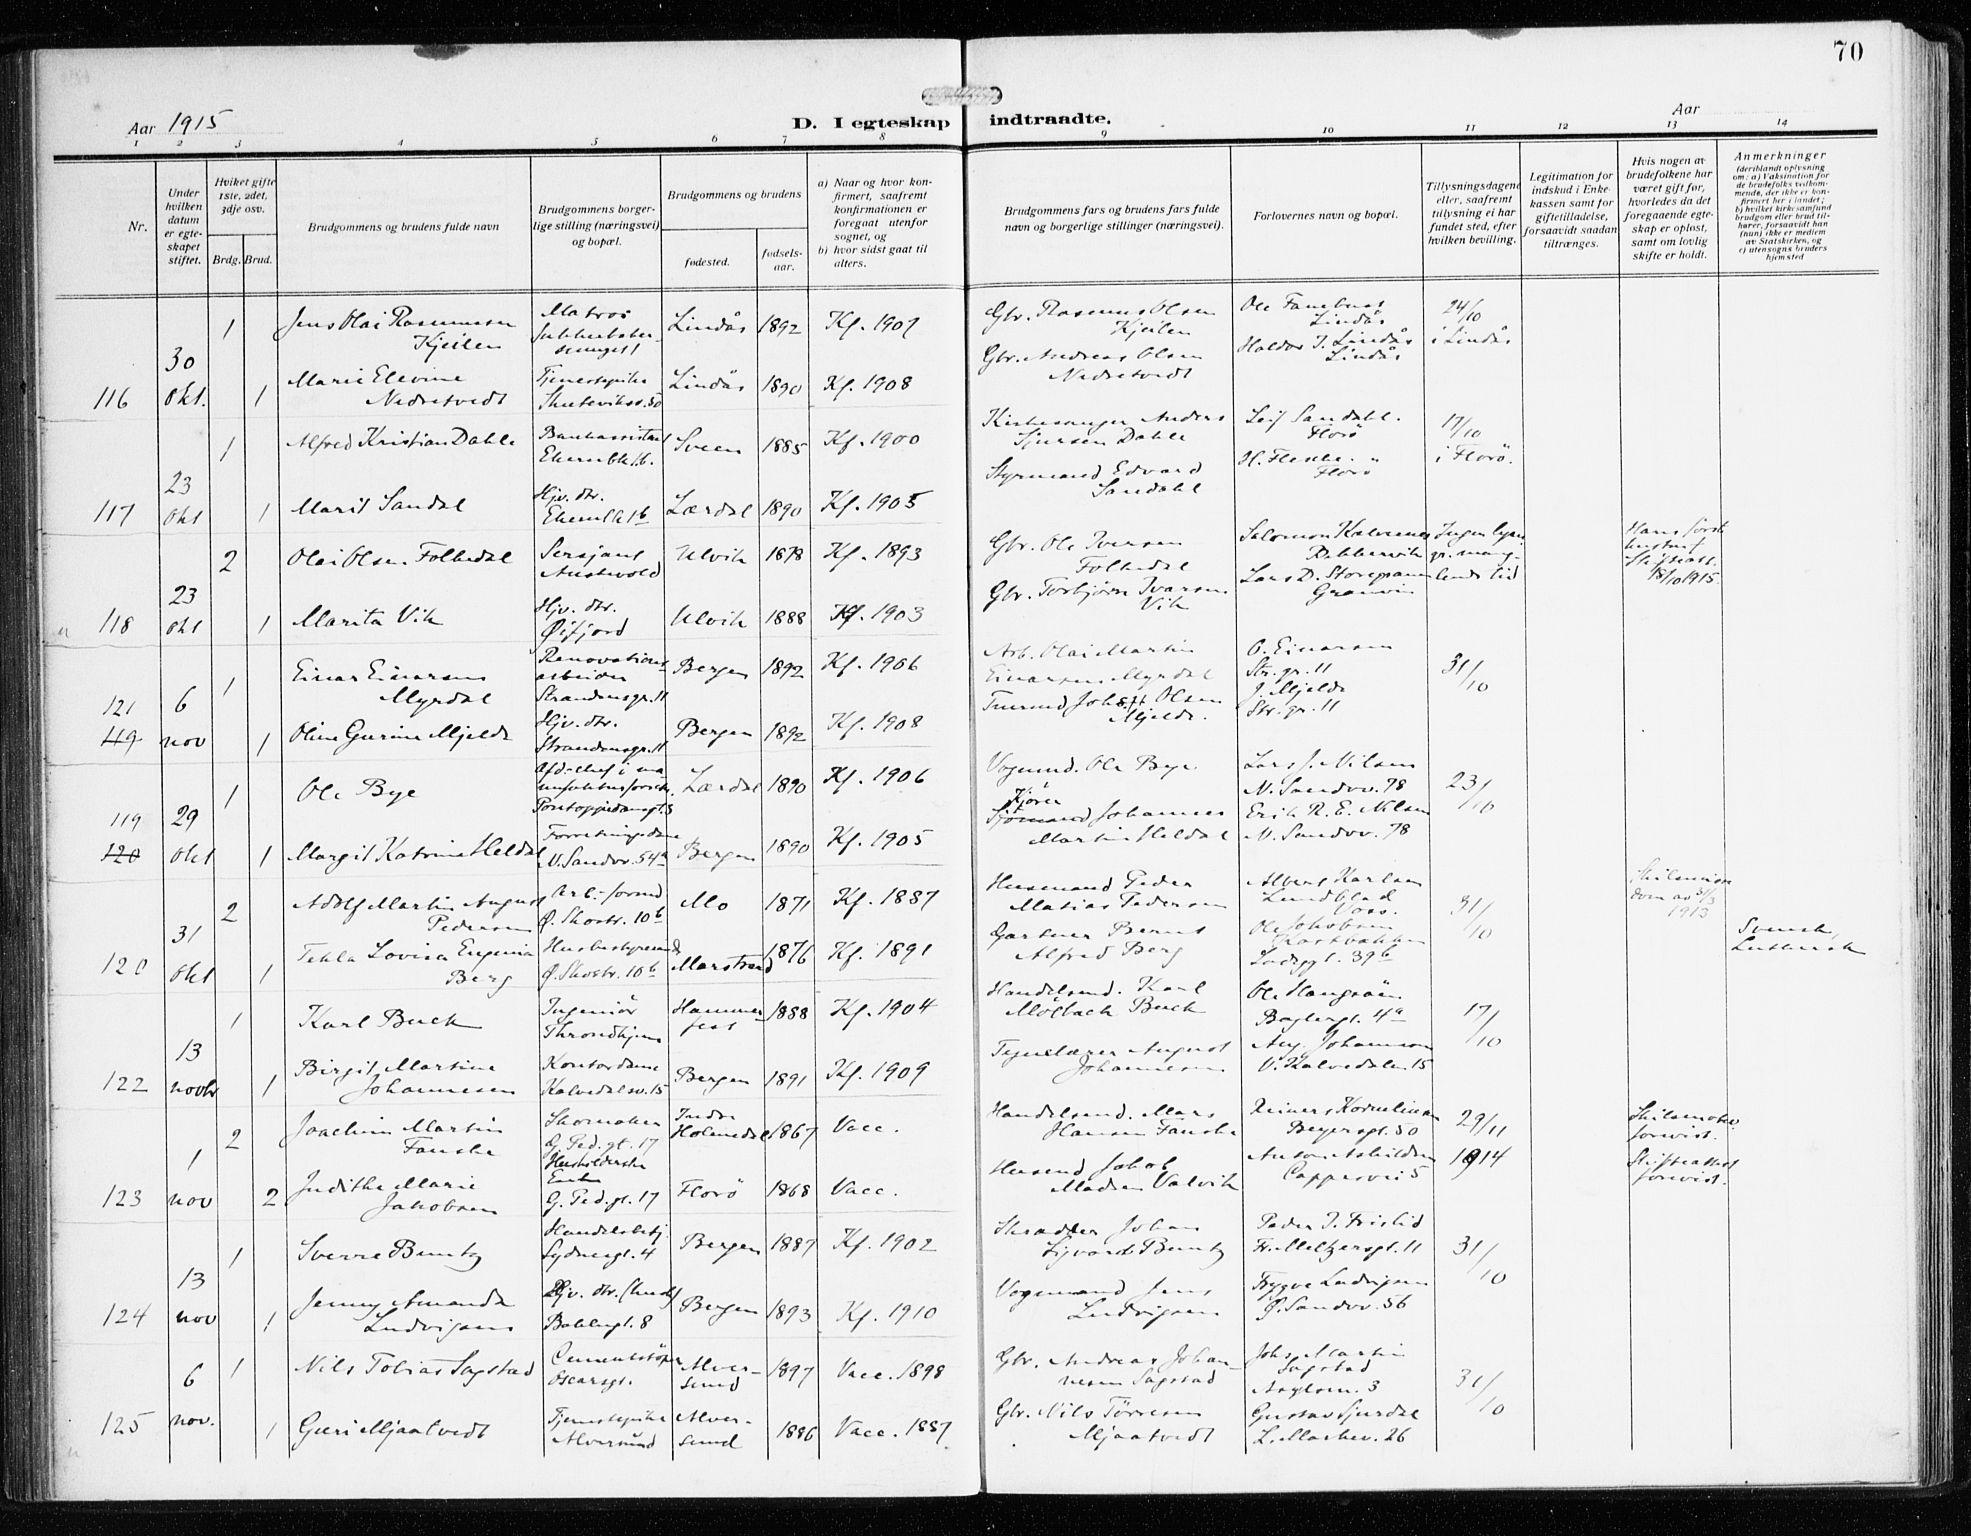 70
Aar 1915
D. I egteskap indtraadte.
Aar
1 2 3 4 5 6 7 8 9 10 11 12 13 14
Nr.
Under hvilken datum er egteskapet stiftet.
Hvilket gifte 1ste, 2det, 3dje osv.
Brdg. Brud.
Brudgommens og brudens fulde navn
Brudgommens borgerlige stilling (næringsvei) og bopæl.
Brudgommens og brudens
fødested.
fødselsaar.
a) Naar og hvor konfirmert, saafremt konfirmationen er foregaat utenfor sognet, og
b) hvor sidst gaat til alters.
Brudgommens fars og brudens fars fulde navn og borgerlige stillinger (næringsvei).
Forlovernes navn og bopæl.
Tillysningsdagene eller, saafremt tillysning ei har fundet sted, efter hvilken bevilling.
Legitimation for indskud i Enkekassen samt for giftetilladelse, forsaavidt saadan tiltrænges.
Hvis nogen av brudefolkene har været gift før, hvorledes da det foregaaende egteskap er opløst, samt om lovlig skifte er holdt.
Anmerkninger
(deriblandt oplysning om: a) Vaksination for de brudefolks vedkommende, der ikke er konfirmert her i landet; b) hvilket kirkesamfund brudgom eller brud tilhører, forsaavidt han (hun) ikke er medlem av Statskirken, og c) utensogns bruders hjemsted
1 Jens Olai Rasmussen Kjeilen Matros Lindås 1892 Kf. 1907 Gbr. Rasmus Olsen Kjeilen Ole Lindås 24/10
116 30 okt. 1 Marie Elevine Nedretvedt Tjenestepike Skuteviksv. 50 Lindås 1890 Kf. 1908 Gbr. Andreas Olsen Nedretvedt Haldor J. Lindås Lindås i Lindås
1 Alfred Kristian Dahle Bankassistent Sveen 1885 Kf. 1900 Kirkesanger Anders Sjursen Dahle Leif Sandahl. Florø 17/10
117 23 okt 1 Marit Sandal Hjv. dtr. Lærdal 1890 Kf. 1905 Styrmand Edvard Sandahl Florø i Florø.
2 Olai Olsen Folkedal Sersjant Austevold Ulvik 1878 Kf. 1893 Gbr. Ole Iversen Folkedal Salomon Ingen Hans første hustru Skifteatt. 18/10 1915.
118 23 okt 1 Marita Vik Hjv. dtr. Øifjord Ulvik 1888 Kf. 1903 Gbr. Torbjørn Ivarsen Vik Lars D. Granvin
1 Einar Einarsen Myrdal Renovationsarbeider Strandensgr. 11 Bergen 1892 Kf. 1906 Arb. Olai Martin Einarsen Myrdal O. Einarsen Str. gr. 11 31/10
121 119 6 nov 1 Oline Gurine Mjelde Hjv. dtr. Strandensgr. 11 Bergen 1892 Kf. 1908 Olsen Mjelde. J. Mjelde Str. gr. 11
1 Ole Bye Lærdal 1890 Kf. 1906 Vognmd. Ole Bye Lars J. Nilsen N. Sandsv. 78 23/10
119 120 29 okt 1 Margit Katrine Heldal N. Sandsv. 54a Bergen 1890 Kf. 1905 Kjører Johannes Martin Heldal Erik R. E. Nilsen N. Sandsv. 78
2 Adolf Martin August Pedersen Arb.-formd Ø. Skostr. 10b Mo 1871 Kf. 1887 Husmand Peder Matias Pedersen Albert Karlsen Lundblad Voss. 31/10 1913
120 31 okt 1 Tekla Lovisa Eugenia Berg Husbestyrerinde Ø. Skostr. 10b Marstrand 1876 Kf. 1891 Gartner Bernt Alfred Berg Ole Jakobsen Svensk, Luthersk
1 Karl Buck Ingeniør Throndhjem Hammerfest 1888 Kf. 1904 Handelsmd. Karl Buck Ole 17/10
122 13 novbr 1 Birgit Martine Johannesen Kontordame Kalvedalsv. 15 Bergen 1891 Kf. 1909 August Johannesen Aug. Johannesen V. Kalvedalen 15
2 Joachim Martin Fanske Skomaker G. Ped. gt. 17 Indre Holmedal 1867 Vacc. Handelsmd. Mars Hansen Fanske Reinert Kornelius Beyersgt. 50 29/11
123 1 nov 2 Judithe Marie Jakobsen Enke G. Ped. gt. 17 Florø 1868 Vacc. Husmd Jakob Madsen Valvik Cappesvei 5 1914 Skifteattest forevist.
1 Sverre Buntz Handelsbetj. Sydnesgt. 4 Bergen 1887 Kf. 1902 Skrædder Johan Sigvard Buntz Peder J. Fristid Fr. Meltzersgt. 11 31/10
124 13 nov 1 Jenny Amanda Ludvigsen Hjv. dtr. Bergen 1893 Kf. 1910 Vognmand Jens Ludvigsen Trygve Ludvigsen Ø. Sandsv. 56
1 Nils Tobias Sagstad Cementstøper Oscarsgt. Alversund 1897 Vacc. 1898 Gbr. Andreas Johannesen Sagstad Johs Martin Sagstad 31/10
125 6 nov. 1 Guri Mjaatvedt Tjenestepike Alversund Alversund 1886 Vacc. 1887 Gbr. Nils Tørresen Mjaatvedt Gustav Sjurdal